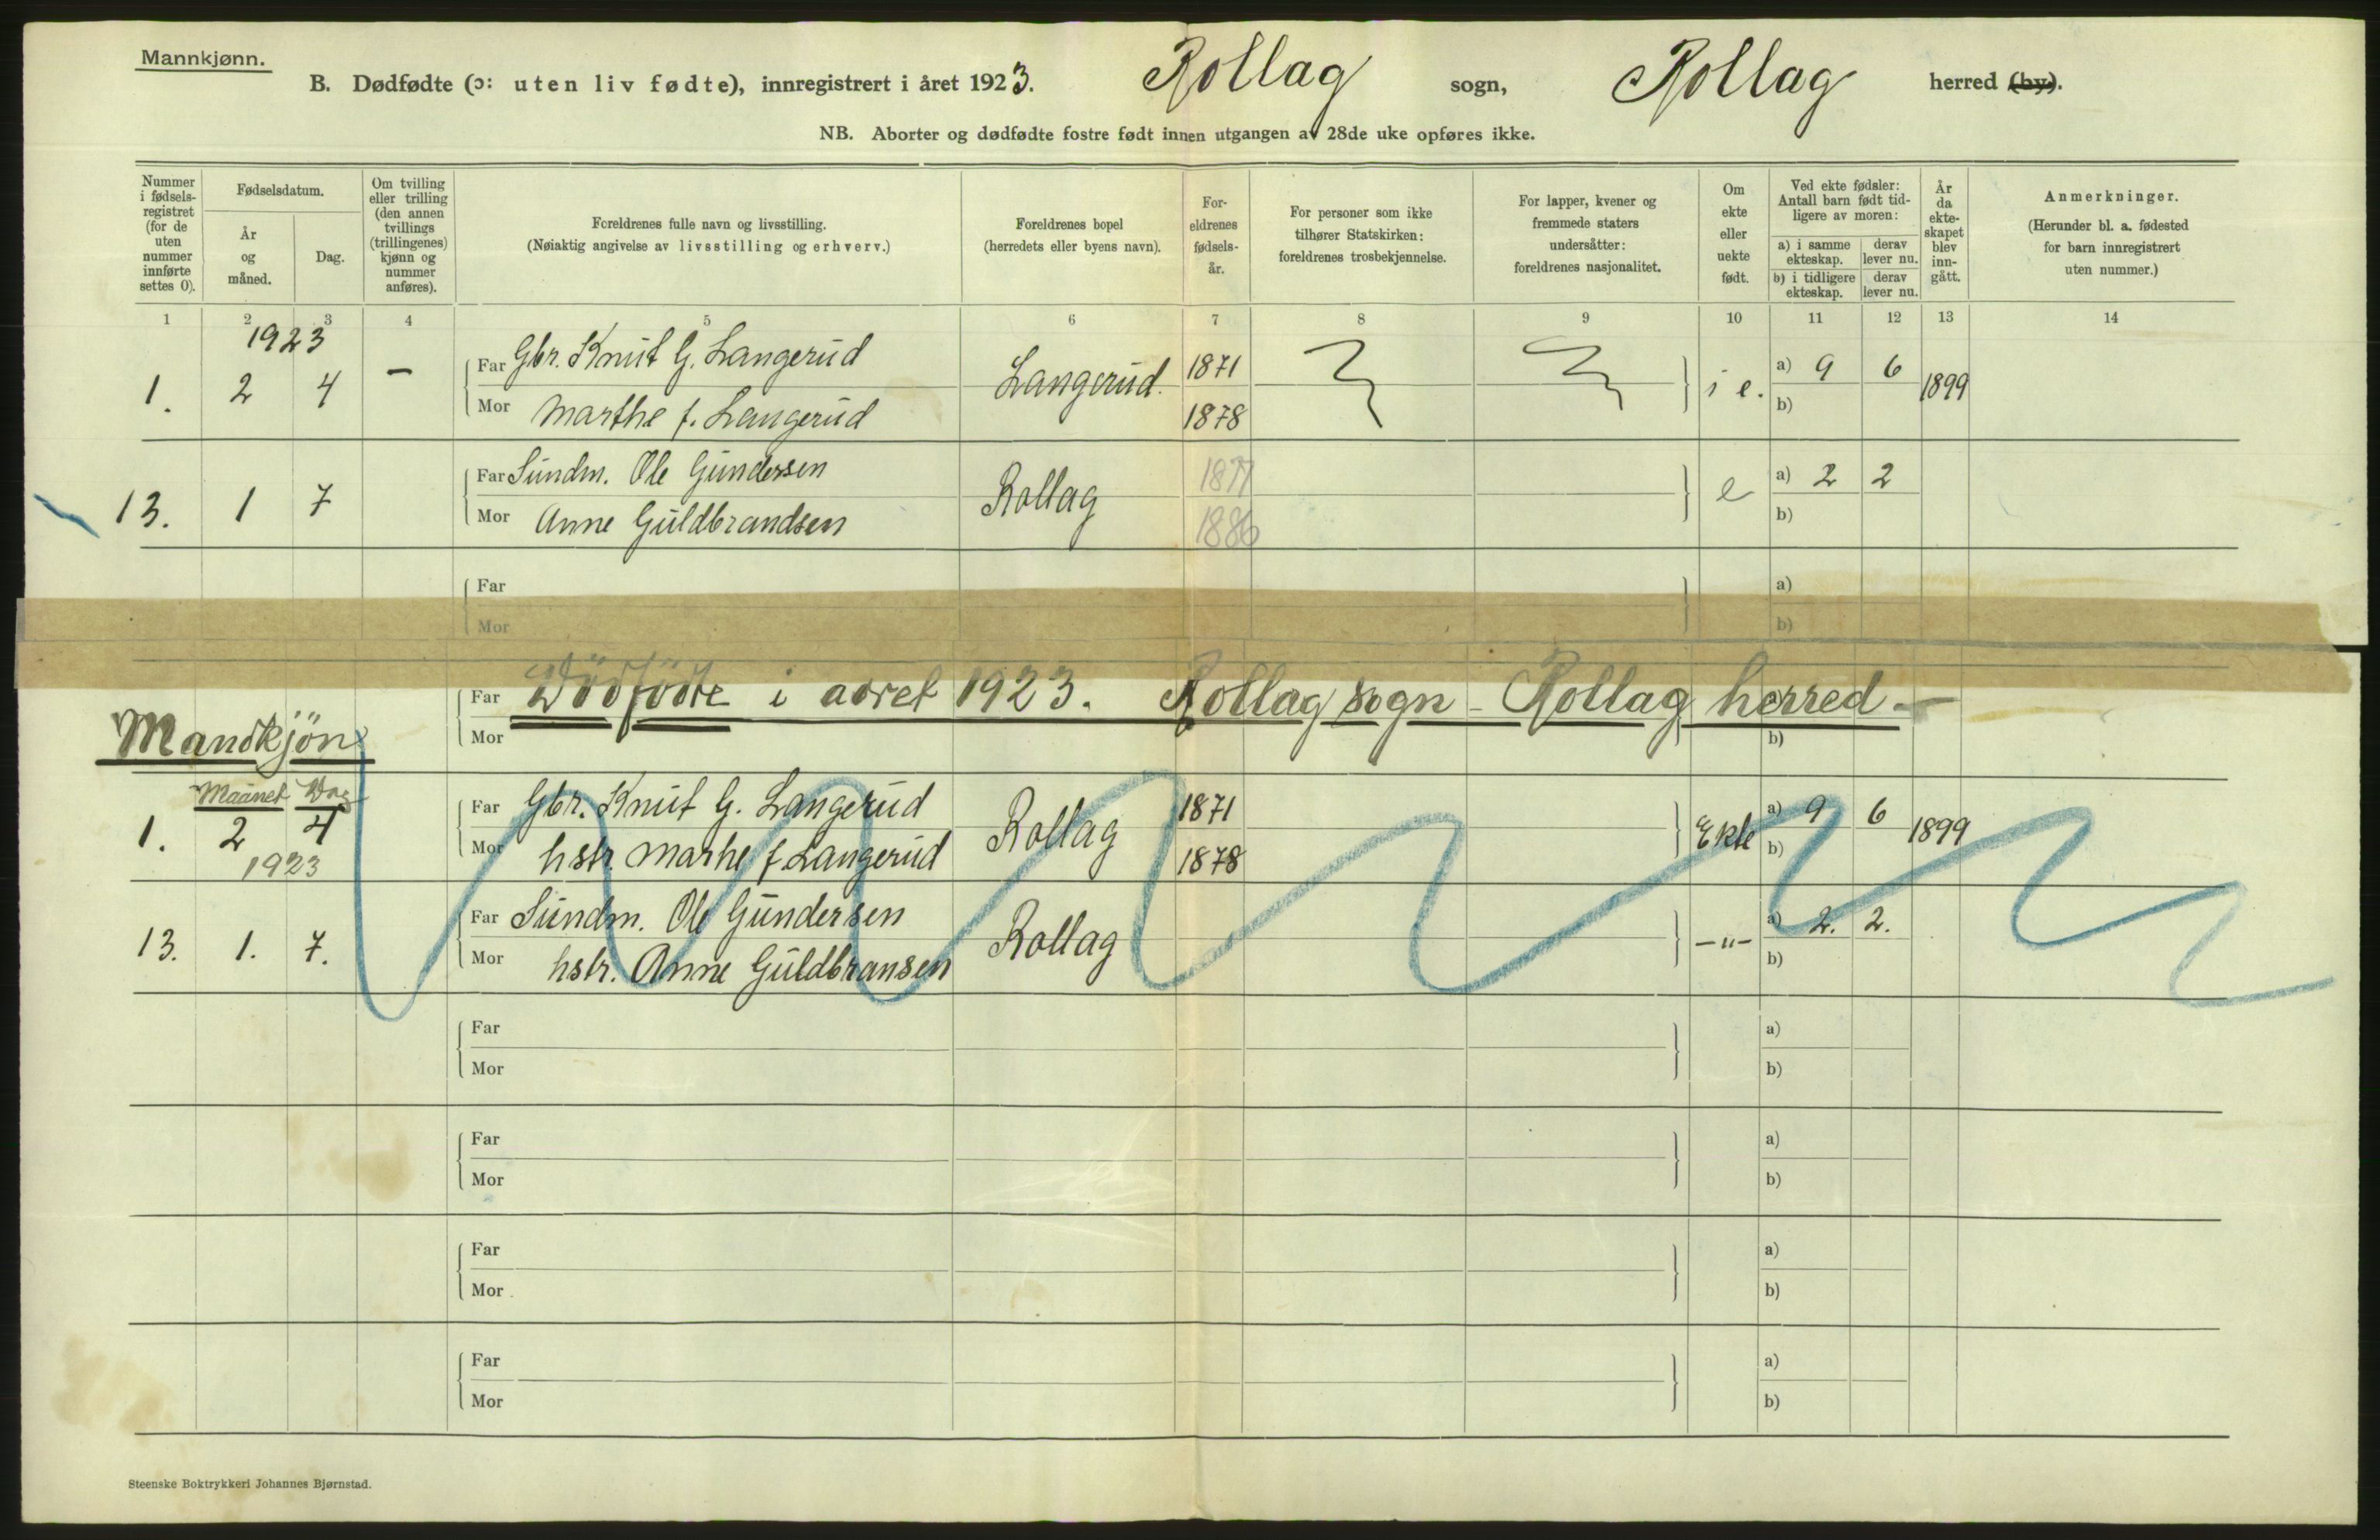 Mannkjønn.
B. Dødfødte (ɔ: uten liv fødte), innregistrert i året 1923. Rollag sogn, Rollag herred (by).
NB. Aborter og dødfødte fostre født innen utgangen av 28de uke opføres ikke.
Nummer i fødsels-registret (for de uten nummer innførte settes 0).
Fødselsdatum.
År og måned.
Dag.
Om tvilling eller trilling (den annen tvillings (trillingenes) kjønn og nummer anføres).
Foreldrenes fulle navn og livsstilling.
(Nøiaktig angivelse av livsstilling og erhverv.)
Foreldrenes bopel
(herredets eller byens navn).
For-eldrenes fødsels-år.
For personer som ikke tilhører Statskirken: foreldrenes trosbekjennelse.
For lapper, kvener og fremmede staters undersåtter: foreldrenes nasjonalitet.
Om ekte eller uekte født.
Ved ekte fødsler: Antall barn født tid-ligere av moren:
a) i samme ekteskap.
derav lever nu.
b) i tidligere ekteskap.
derav lever nu.
År da ekte-skapet blev inn-gått.
Anmerkninger.
(Herunder bl. a. fødested for barn innregistrert uten nummer.)
1 2 3 4 5 6 7 8 9 10 11 12 13 14
1923
1. 2 4 – Far Gbr. Knut G. Langerud Langerud. 1871 i e. a) 9 6 1899
Mor Marthe f. Langerud 1878 b)
13. 1 7 Far Sundm. Ole Gundersen Rollag 1877 e a) 2 2
Mor Anne Guldbrandsen 1886 b)
Far a)
Mor b)
Far Dödfödte i aaret 1923. Rollag sogn – Rollag herred –
Mandkjön Mor b)
Maanet Dag
1. 2 4 Far Gbr. Knut G. Langerud Rollag 1871 Ekte a) 9 6 1899
1923 Mor hstr. Marhe f Langerud 1878 b)
13. 1. 7. Far Sundm. Ole Gundersen Rollag –"– a) 2. 2.
Mor hstr. Anne Guldbransen b)
Far a)
Mor b)
Far a)
Mor b)
Far a)
Mor b)
Far a)
Mor b)
Steenske Boktrykkeri Johannes Bjørnstad.